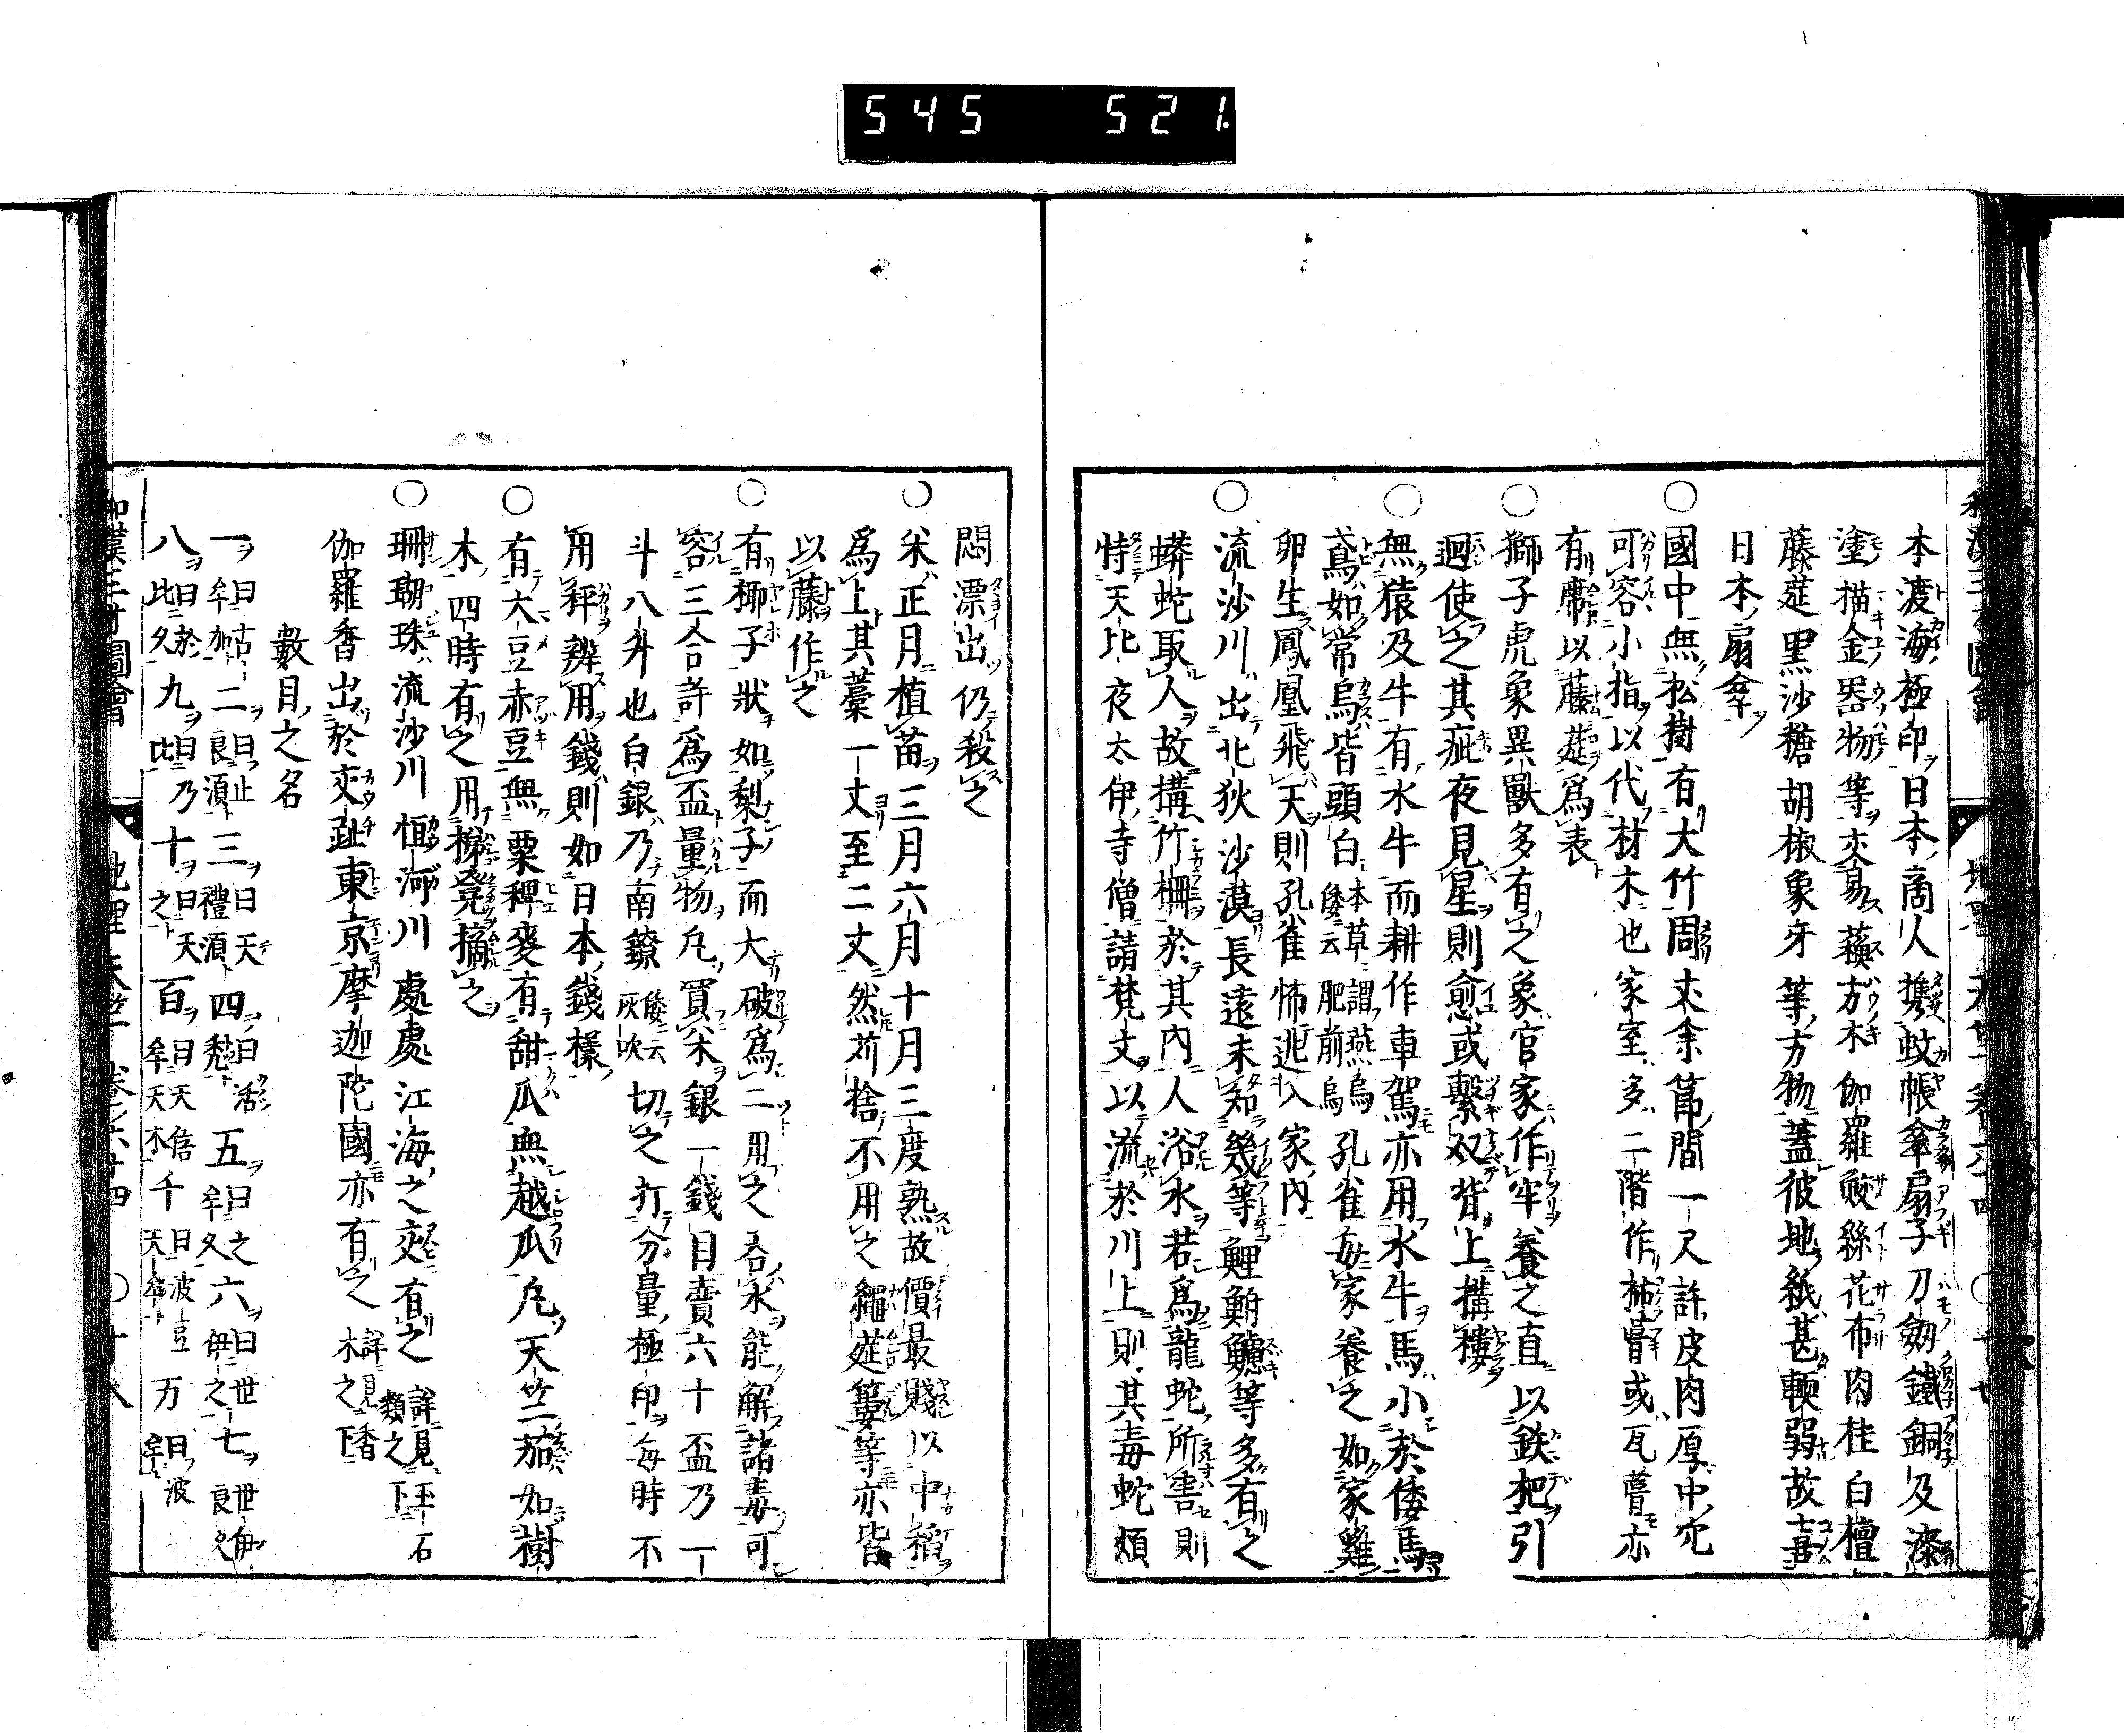 545 521.
本渡海極印日本商人攜蚊帳傘扇子刀劔鐵銅及漆
塗描金器物等交易蘓方木伽羅鮫絲花布肉桂白檀
藤莚黒沙糖胡椒象牙等方物蓋彼地紙甚輭弱故喜
日本扇傘
○國中無松樹有大竹周丈余節間一尺許皮肉厚中穴
可容小指以代材木也家室多二階作柿葺或瓦葺亦
有席以藤莚爲表
○獅子虎象異獸多有之象官家作牢養之直以鉄把引
廻使之其疵夜見星則愈或繫双背上構樓
○無猿及牛有水牛而耕作車駕亦用水牛馬小於倭馬
鳶如常烏皆頭白本草謂燕烏倭云肥前烏孔雀毎家養之如家雞
卵生鳳凰飛天則孔雀怖逃入家內
○流沙川出北狄沙漠長遠未知幾等鯉鮒鱸等多有之
蟒蛇取人故構竹柵於其內人浴水若爲龍蛇所害則
特天比夜太伊寺僧請梵文以流於川上則其毒蛇煩
悶漂出仍殺之
○米正月植苗三月六月十月三度熟故價最賤以中稻
爲上其藁一丈至二丈然苅捨不用之繩莚簍等亦皆
以藤作之
○有椰子狀如梨子而大破爲二用之呑水能解諸毒可
容三合許爲盃量物凡買米銀一錢目賣六十盃乃一
斗八升也白銀乃南鐐倭云灰吹切之打分量極印毎時不
用秤辨用錢則如日本錢樣
○有大豆赤豆無粟稗麥有甜瓜無越瓜凡天竺茄如樹
木四時有之用梯凳摘之
○珊瑚珠流沙川恒河川處處江海之交有之詳見玉石類之下
伽羅香出於交趾東京摩迦陀國亦有之詳見香木之下
數目之名
一曰古牟加二曰止良湏三曰天禮湏四曰活禿五曰之牟久六曰世伊之七世伊良久
八曰於比久九曰乃比十曰天之百曰天牟天木倍千曰波豆天牟万曰波牟
和漢三才圖會 地理 天竺 卷之六十四 ○十八